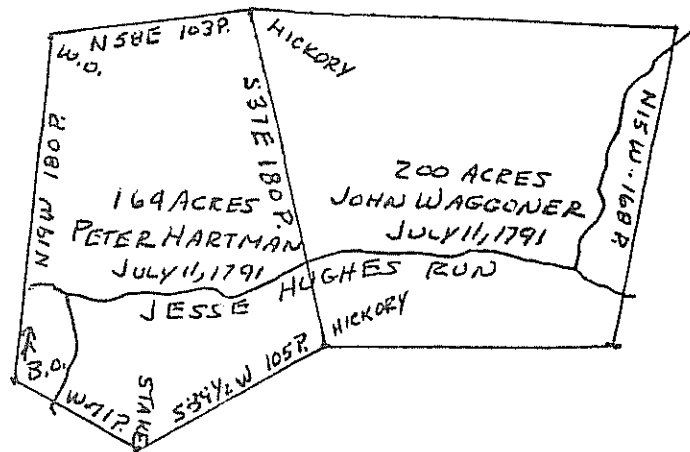 N58E 103P.
W.O.
HICKORY
S37E 180P.
N19W 180P.
N15W-168P.
164 ACRES
PETER HARTMAN
JULY 11, 1791
200 ACRES
JOHN WAGGONER
JULY 11, 1791
JESSE HUGHES RUN
HICKORY
B.O.
W-71P.
STAKE
S34½W 105P.